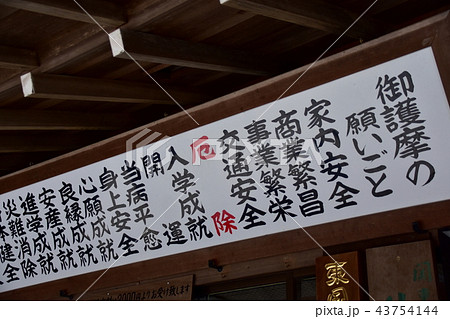 御護摩の
願いごと
家内安全
商業繁昌
事業繁栄
交通安全
厄除
入学成就
開運
当病平癒
身上安全
心願成就
良縁成就
安産成就
進学成就
災難消除
東
pixta.jp - 43754144